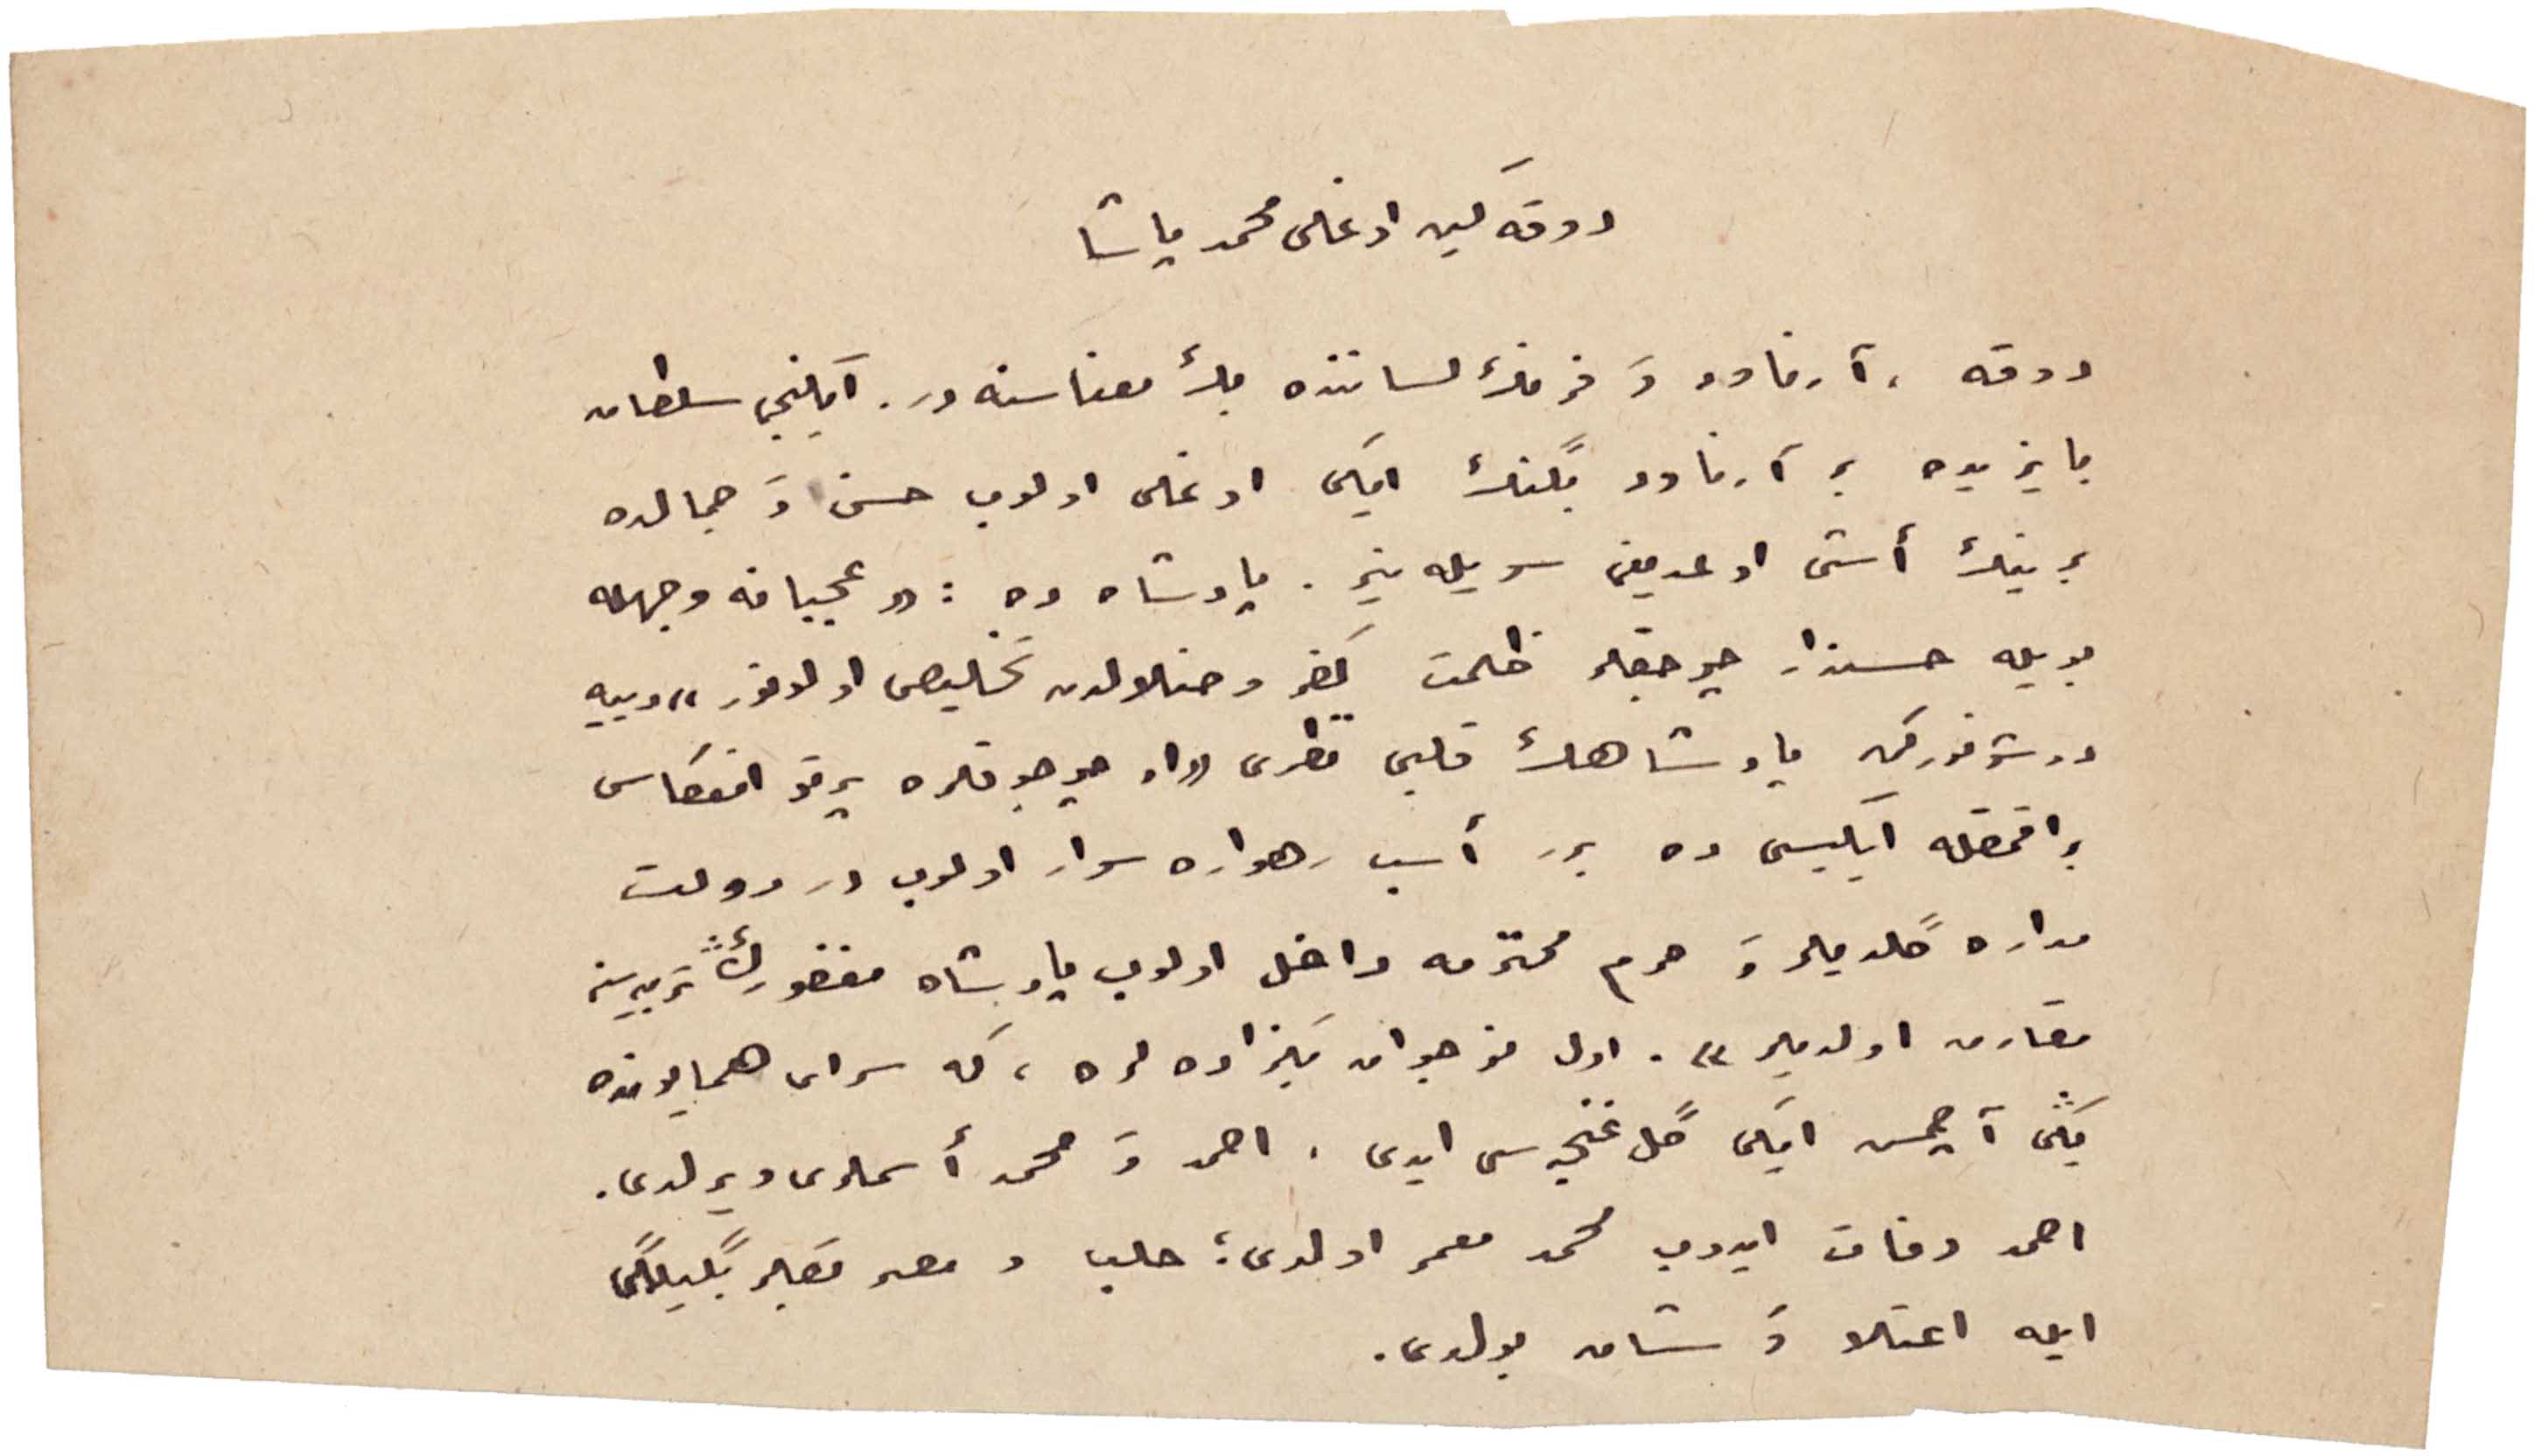 دوقه‌كین اوغلی محمد پاشا
دوقه ، آرناود وَ فرنك لساننده بك معناسنه در. ایكنجی سلطان
بایزیده بر آرناود بگنك ایكی اوغلی اولوب حسن وَ جمالده
برینك أشی اولمدیغنی سویله‌ینجه . پادشاه ده : «عجبا نه وجهله
بویله حسندار چوجقلر ظلمت كفر و ضلالدن تخلیص اولونور» دییه
دوشونوركن پادشاهك قلبی نظری «او چوجوقلره پرتو انعكاس
براقمقله ایكیسی ده برر أسب رهواره سوار اولوب در دولت
مداره گلدیلر وَ حرم محترمه داخل اولوب پادشاه مغفورك تربیه‌سنه
مقارن اولدیلر» . اول نوجوان بكزاده لره ، كه سرای همایونده
یكی آچمش ایكی گل غنچه‌سی ایدی ، احمد وَ محمد أسملری ویرلدی.
احمد وفات ایدوب محمد معمر اولدی؛ حلب و مصر بگلربگیلگی
ایله اعتلا وَ شان بولدی.